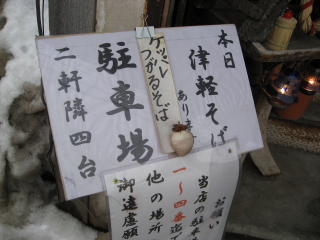 本日
津軽そば
あります
けっぱれ
ながるそば
駐車場
二軒隣四台
お願い
当店の駐車
一〜四番迄
他の場所
御遠慮願